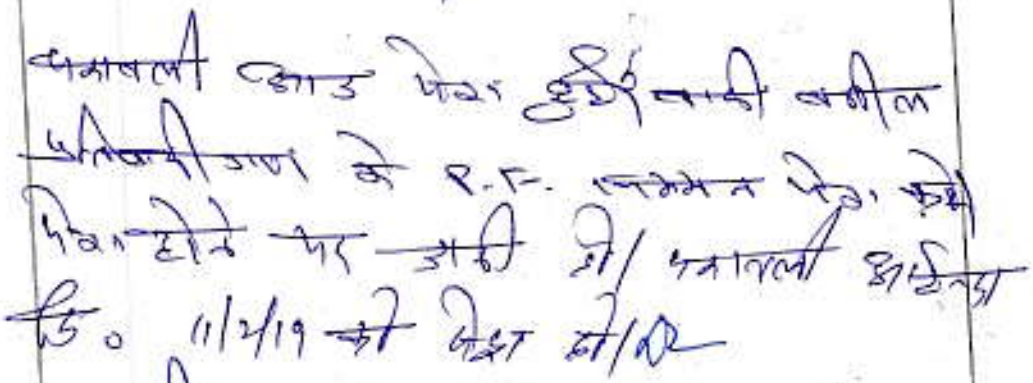 पत्रावली आज पेश हुई। वादी वकील
प्रतिवादीगण के P.F. सम्मन पेश करे।
पेश होने पर जारी हो। पत्रावली आईन्दा
दि० 11/2/19 को पेश हो।